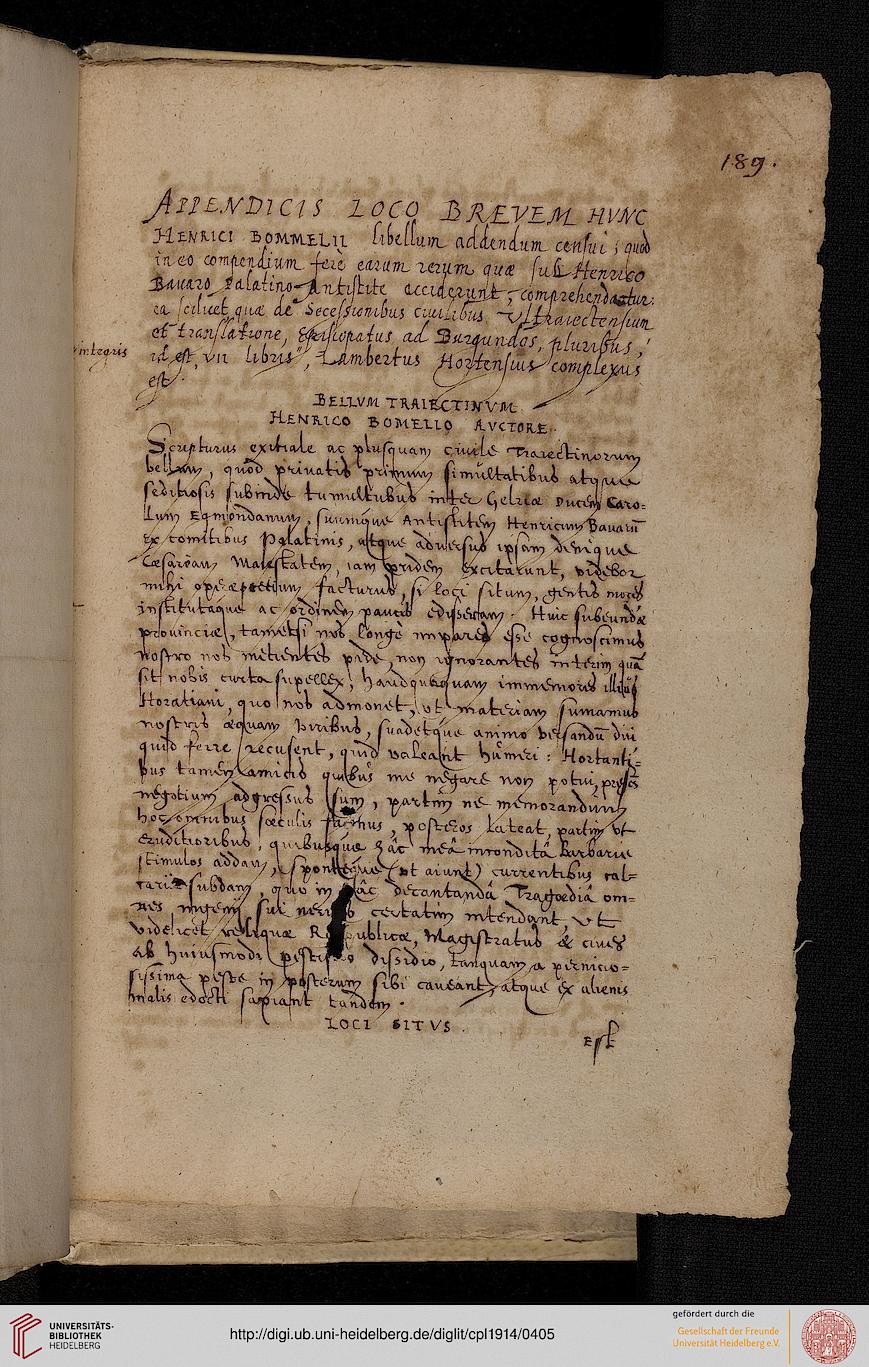 189.
APPENDICIS LOCO BREVEM HVNC
HENRICI BOMMELII libellum addendum censui ; quòd
in eo compendium ferè earum rerum quæ sub Henrico
Bavaro Palatino Antistite acciderunt, comprehendatur:
ea scilicet quæ de Secessionibus civilibus Vltraiectensium
et translatione, Episcopatus ad Burgundos, pluribus,
integris
id est, VII libris, Lambertus Hortensius complexus
est.
BELLVM TRAIECTINVM
HENRICO BOMELIO AVCTORE.
Scripturus exitiale ac plusquam civile Traiectinorum
bellum, quod privatis primum simultatibus atque
seditiosis subinde tumultubus inter Gelriæ Ducem Caro-
lum Egmondanum, suumque Antistitem Henricum Bavarū
ex comitibus Palatinis, atque adversus ipsam denique
Cæsaream Maiestatem, iam pridem excitarunt, videbor
mihi operæpretium facturus, si loci situm, gentis mores
institutaque ac ordinem paucis edisseram. Huic subeundæ
provinciæ, tametsi nos longè impares esse cognoscimus
nostro nos metientes pede, non ignorantes interim quā
sit nobis curta supellex, haudquaquam immemores illius
Horatiani, quo nos admonet, ut materiam sumamus
nostris æquam viribus, suadetque animo versandū diu
quid ferre recusent, quid valeant humeri: Hortanti-
bus tamen amicis quibus me negare non potui,
negotium adgressus sum, partim ne memorandum
hoc omnibus sæculis facinus, posteros lateat, partim ut
eruditioribus, quibusque hâc meâ inconditâ Barbarie
stimulos addam, sponteque (ut aiunt) currentibus cal-
caria subdam, quo in hâc decantandâ Tragœdiâ om-
nes ingenij sui nervos certatim intendant, ut
videlicet reliquæ Respublicæ, Magistratus & cives
ab huiusmodi pestifero dissidio, tanquam a pernicio-
sissima peste in posterum sibi caveant, atque ex alienis
malis edocti sapiant tandem.
LOCI SITVS.
Est
UNIVERSITÄTS-
BIBLIOTHEK
HEIDELBERG
http://digi.ub.uni-heidelberg.de/diglit/cpl1914/0405
gefördert durch die
Gesellschaft der Freunde
Universität Heidelberg e.V.